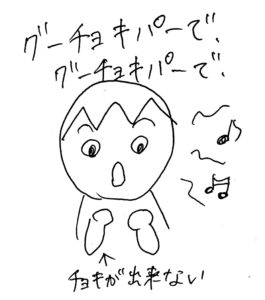 グーチョキパーで、
グーチョキパーで、
チョキが出来ない